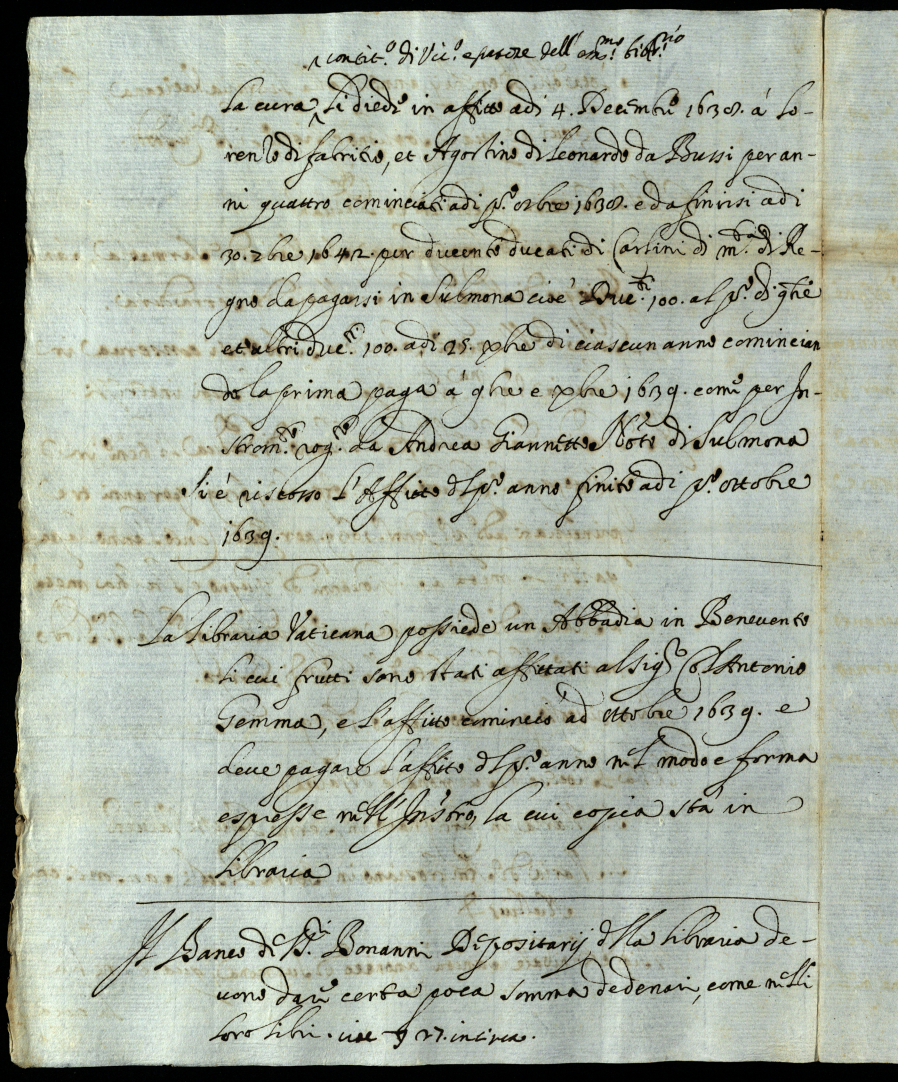 con tit.º di Vic.º e parere dell' em.mo bibl.rio
la cura, si diede in affitto adi 4. Decembre 1638. á Lo-
renzo di fabritio, et Agostino di Leonardo da Bussi per an-
ni quattro cominciati adi p.º 8bre 1638. e da finirsi adi
30. 7bre 1642. per ducento ducati di Carlini di m.ta di Re-
gno da pagarsi in Sulmona cioè Duc.ti 100. al p.º di 9bre
et altri duc.ti 100. adi 25. xbre di ciascun anno comincian
do la prima paga a' 9bre e xbre 1639. come per In-
strom.to rog.to da Andrea Giannetto Not.º di Sulmona
Si é riscosso l'Affitto del p.º anno finito adi p.º ottobre
1639.
La libraria Vaticana possiede un Abbadia in Benevento
li cui frutti sono stati affittati al Sig.r Antonio
Gemma, e l'affitto cominciò ad ottobre 1639. e
deve pagare l'affitto del p.º anno nel modo e forma
espresse nell' Instro, la cui copia stá in
libraria
Il Banco de SS.ri Bonanni Depositarij della libraria de-
vono dare certa poca somma de denari, come nelli
loro libri. cioe 27. incirca.